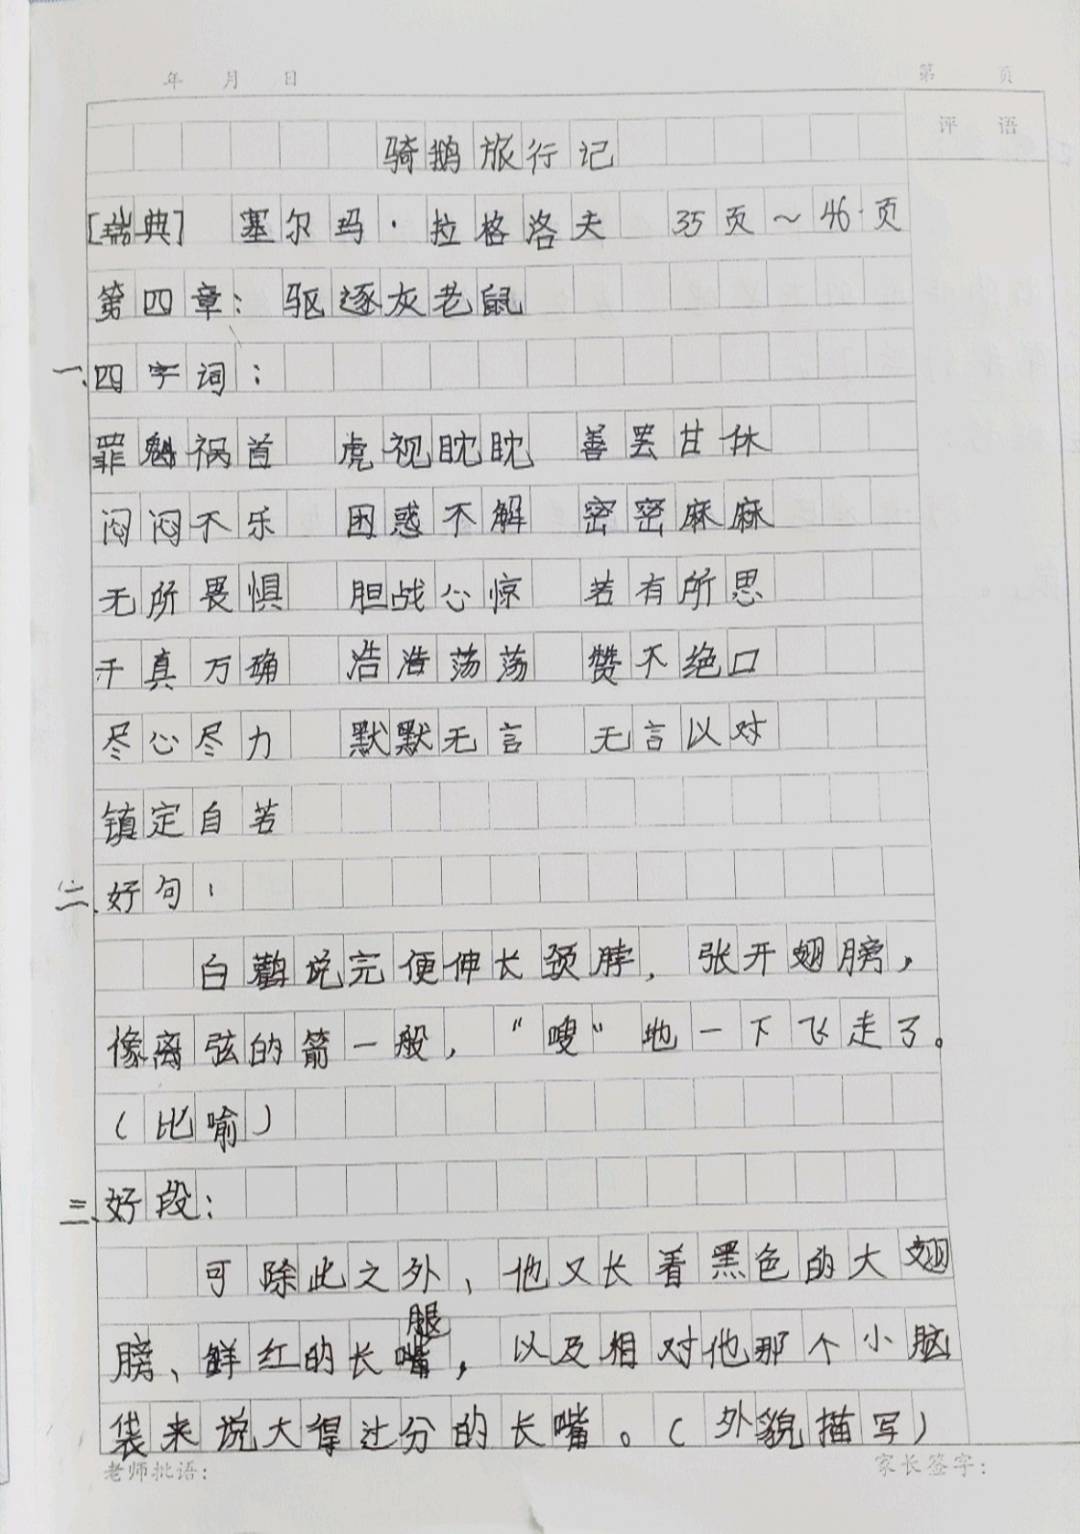 年 月 日 第 页
评 语
骑鹅旅行记
[瑞典] 塞尔玛·拉格洛夫 35页~46页
第四章：驱逐灰老鼠
一、四字词：
罪魁祸首 虎视眈眈 善罢甘休
闷闷不乐 困惑不解 密密麻麻
无所畏惧 胆战心惊 若有所思
千真万确 浩浩荡荡 赞不绝口
尽心尽力 默默无言 无言以对
镇定自若
二、好句：
白鹳说完便伸长颈脖，张开翅膀，
像离弦的箭一般，“嗖”地一下飞走了。
（比喻）
三、好段：
可除此之外，他又长着黑色的大翅
膀、鲜红的长腿，以及相对他那个小脑
袋来说大得过分的长嘴。（外貌描写）
老师批语： 家长签字：